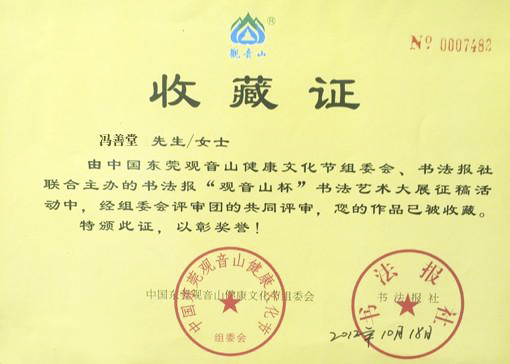 觀音山
№ 0007482
收藏证
冯善堂 先生/女士
由中国东莞观音山健康文化节组委会、书法报社
联合主办的书法报“观音山杯”书法艺术大展征稿活
动中，经组委会评审团的共同评审，您的作品已被收藏。
特颁此证，以彰奖誉！
中国东莞观音山健康文化节组委会 书法报社
中国东莞观音山健康文化节
组委会
书法报社
2012年10月18日